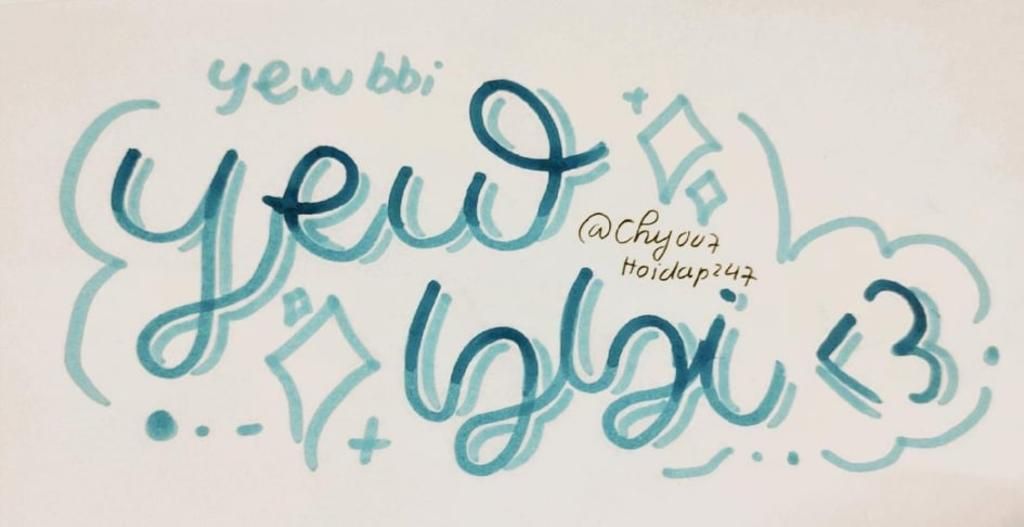 yew bbi
yew
@Chy007
Hoidap247
bbi <3